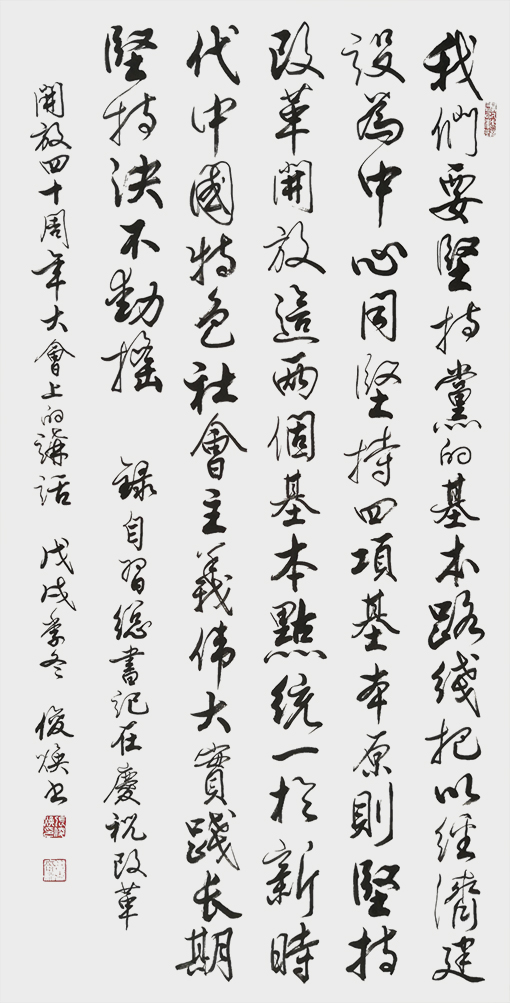 我們要堅持黨的基本路綫把以經濟建
設為中心同堅持四項基本原則堅持
改革開放這兩個基本點統一於新時
代中國特色社會主義偉大實踐長期
堅持決不動搖
錄自習總書記在慶祝改革
開放四十周年大會上的講話 戊戌季冬 俊煥書